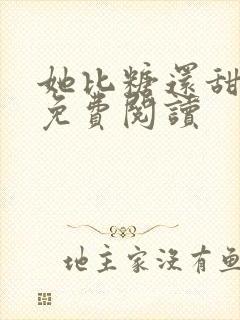 她比糖還甜
免費閱讀
地主家沒有魚